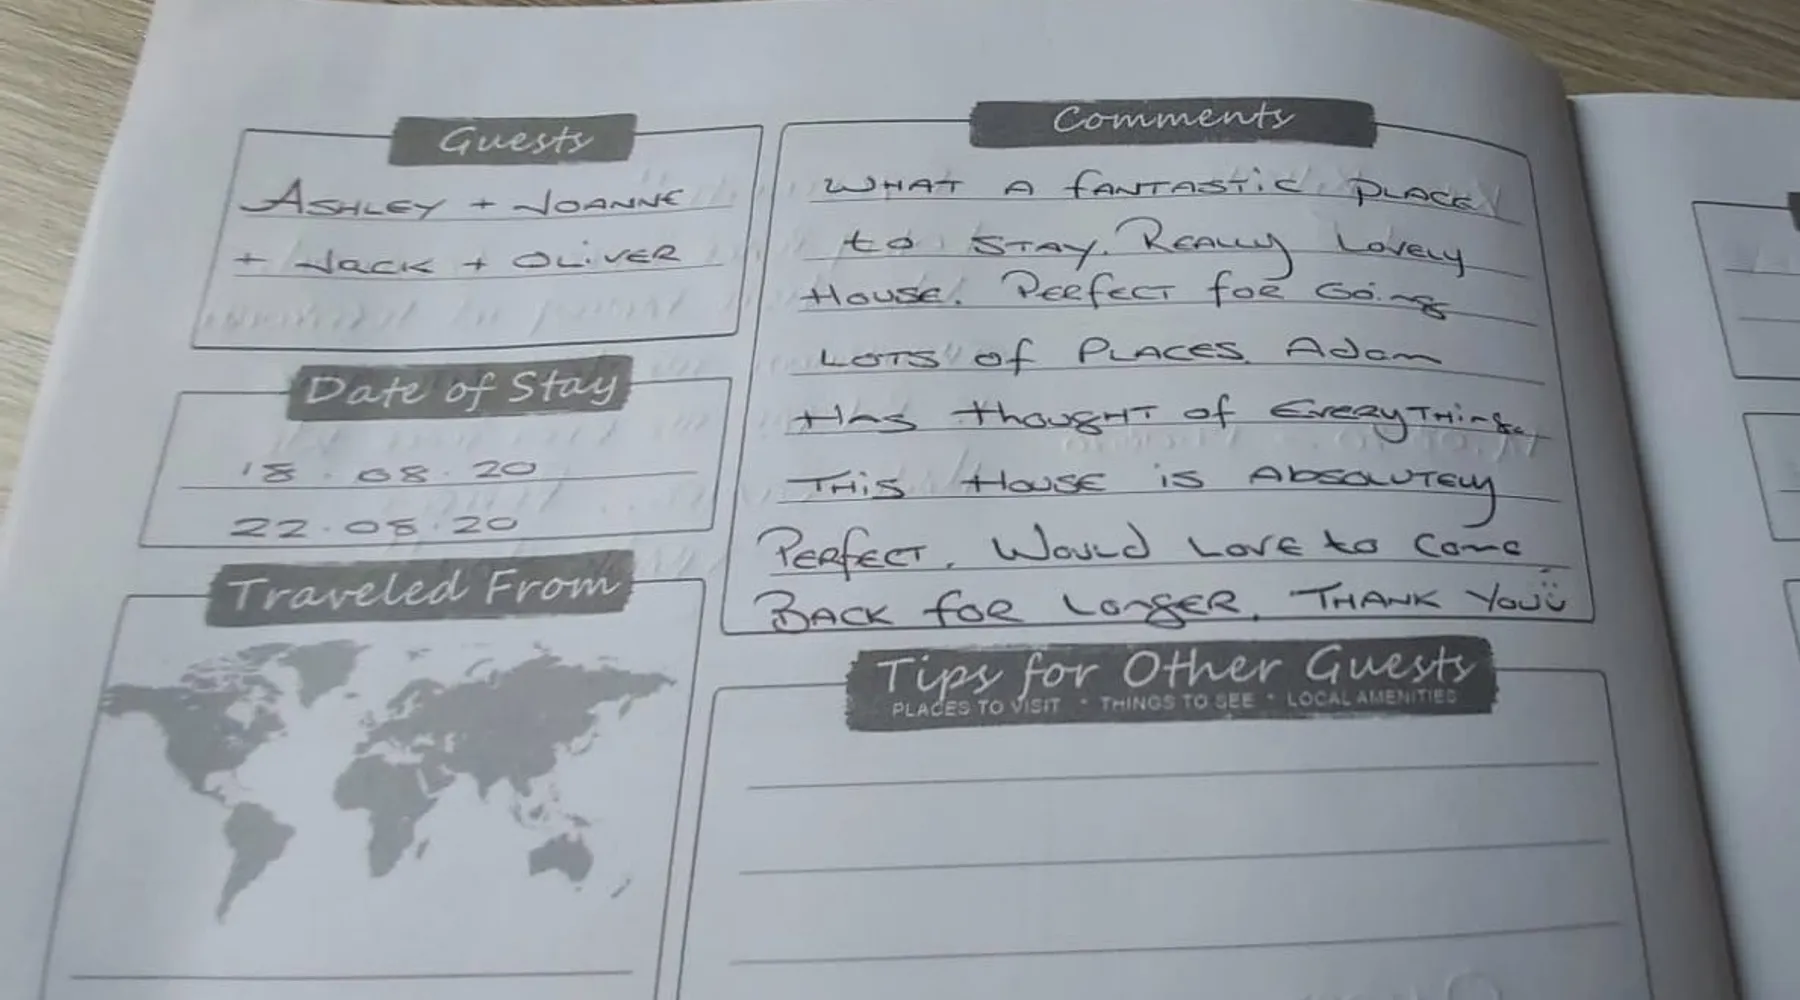 Guests
ASHLEY + JOANNE
+ JACK + OLIVER
Date of Stay
18.08.20
22.08.20
Traveled From
Comments
WHAT A fANTASTiC PLACE
to STAY. REALLY LOVELY
HOUSE. PERfECT fOR GOiNg
LOTS Of PLACES. Adam
HAS thougHT of EVERYTHiNg,
THiS HOUSE iS AbSOLUTELY
PERfECT. WOULD LOVE to COME
BACK fOR LONgER. THANK YOU
Tips for Other Guests
PLACES TO VISIT * THINGS TO SEE * LOCAL AMENITIES